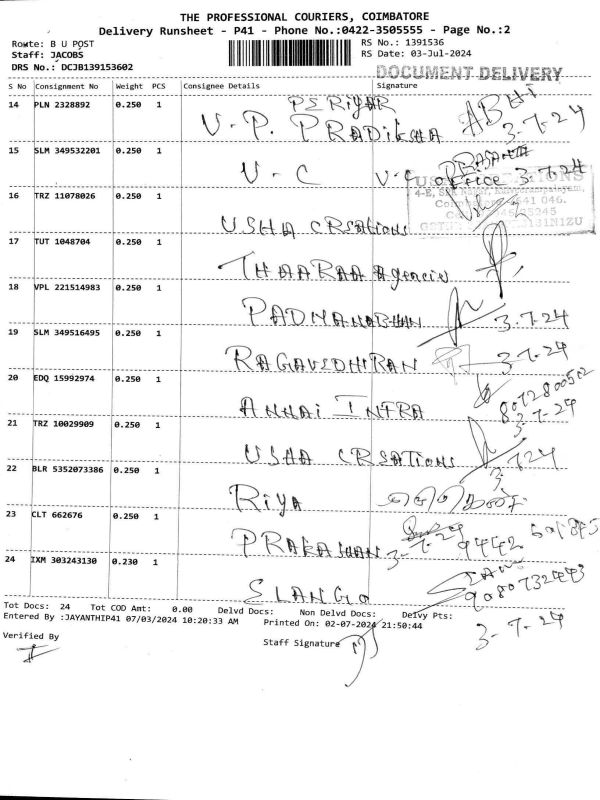 THE PROFESSIONAL COURIERS, COIMBATORE
Delivery Runsheet - P41 - Phone No.:0422-3505555 - Page No.:2
Route: B U POST RS No.: 1391536
Staff: JACOBS RS Date: 03-Jul-2024
DRS No.: DCJB139153602
DOCUMENT DELIVERY
S No Consignment No Weight PCS Consignee Details Signature
14 PLN 2328892 0.250 1 PERIYAR ABHI
V.P. PRADIKSHA 3-7-24
15 SLM 349532201 0.250 1 PRASANTH
V-C V-C office 3-7-24
16 TRZ 11078026 0.250 1
USHA CREATIONS
17 TUT 1048704 0.250 1
THAARAA Agencies
18 VPL 221514983 0.250 1
PADMANABHAN 3-7-24
19 SLM 349516495 0.250 1
RAGAVIDHIRAN 3-7-24
20 EDQ 15992974 0.250 1
ANNAI INTRA 3-7-24
21 TRZ 10029909 0.250 1
USHA CREATIONS 3-7-24
22 BLR 5352073386 0.250 1
RIYA
23 CLT 662676 0.250 1
PRAKASHAN 3-7-24 9442
24 IXM 303243130 0.230 1
ELANGO 9080732443
Tot Docs: 24 Tot COD Amt: 0.00 Delvd Docs: Non Delvd Docs: Delvy Pts:
Entered By :JAYANTHIP41 07/03/2024 10:20:33 AM Printed On: 02-07-2024 21:50:44
3-7-24
Verified By Staff Signature